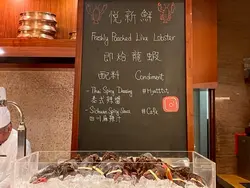 悅新鮮
Freshly Poached Live Lobster
即焓龍蝦
配料 Condiment
- Thai Spicy Dressing #Hyatttst
泰式辣醬
- Sichuan Spicy Sauce #Cafe
四川麻辣汁